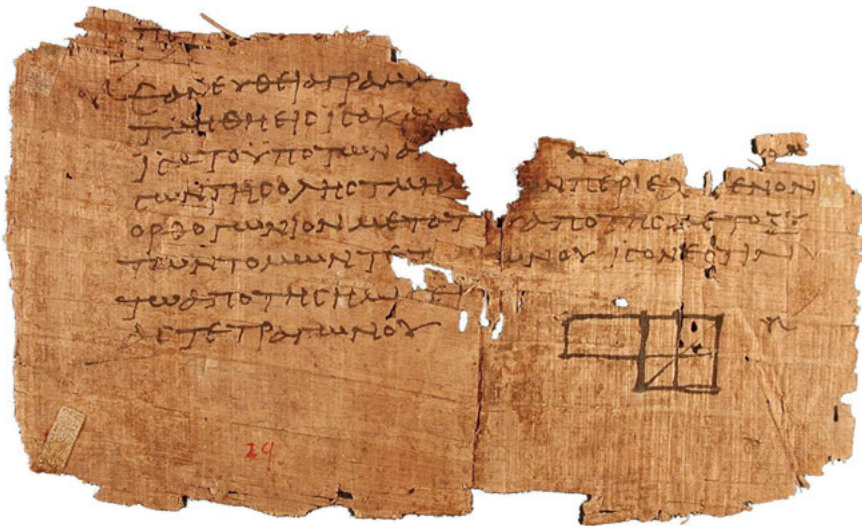 ΕΑΝΕΥΘΕΙΑΓΡΑΜΜ
ΤΜΗΘΗΕΙϹΙϹΑΚΑΙΑΝ
ΙϹΑΤΟΥΠΟΤΩΝΑΝ
ϹΩΝΤΗϹΟΛΗϹΤΜΗΜ ΩΝΠΕΡΙΕΧ ΜΕΝΟΝ
ΟΡΘΟΓΩΝΙΟΝΜΕΤΟΤ ΑΠΟΤΗϹΜΕΤΟΞΥ
ΤΩΝΤΟΜΩΝΤΕΤ ΩΝΟΥΙϹΟΝΕϹΤΙΝ
ΤΩΑΠΟΤΗϹΗΜΙϹΕΙ
ΑϹΤΕΤΡΑΓΩΝΟΥ
29